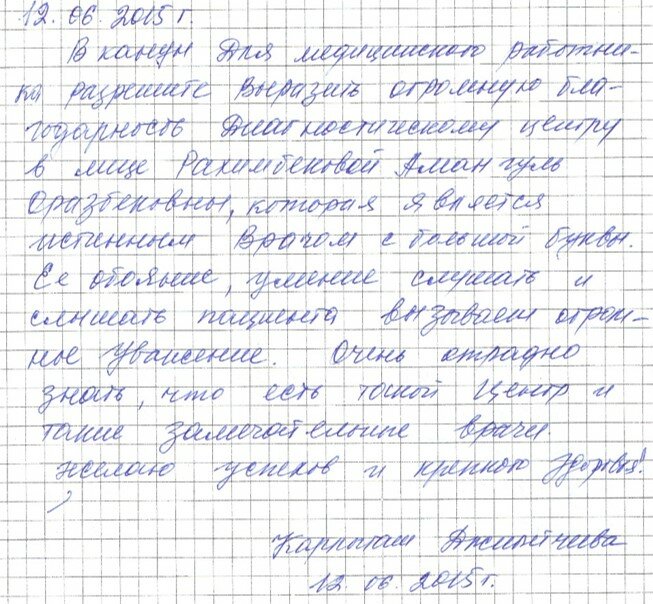 12. 06. 2015 г.
В канун Дня медицинского работни-
ка разрешите выразить огромную бла-
годарность Диагностическому центру
в лице Рахимбековой Амангуль
Оразбековны, которая является
истинным Врачом с большой буквы.
Ее обаяние, умение слушать и
слышать пациента вызывает огром-
ное уважение. Очень отрадно
знать, что есть такой Центр и
такие замечательные врачи.
Желаю успехов и крепкого здоровья!
Карлыгаш
12. 06. 2015 г.